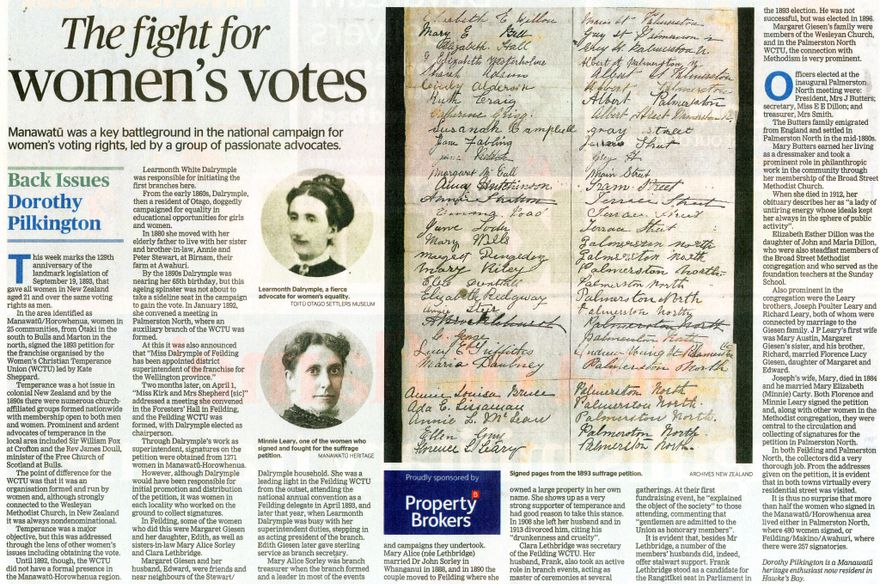 The fight for
women's votes
Manawatū was a key battleground in the national campaign for
women's voting rights, led by a group of passionate advocates.
Back Issues
Dorothy
Pilkington
This week marks the 129th
anniversary of the
landmark legislation of
September 19, 1893, that
gave all women in New Zealand
aged 21 and over the same voting
rights as men.
In the area identified as
Manawatū/Horowhenua, women in
25 communities, from Ōtaki in the
south to Bulls and Marton in the
north, signed the 1893 petition for
the franchise organised by the
Women's Christian Temperance
Union (WCTU) led by Kate
Sheppard.
Temperance was a hot issue in
colonial New Zealand and by the
1890s there were numerous church-
affiliated groups formed nationwide
with membership open to both men
and women. Prominent and ardent
advocates of temperance in the
local area included Sir William Fox
at Crofton and the Rev James Doull,
minister of the Free Church of
Scotland at Bulls.
The point of difference for the
WCTU was that it was an
organisation formed and run by
women and, although strongly
connected to the Wesleyan
Methodist Church, in New Zealand
it was always nondenominational.
Temperance was a major
objective, but this was addressed
through the lens of other women's
issues including obtaining the vote.
Until 1892, though, the WCTU
did not have a formal presence in
the Manawatū-Horowhenua region.
Learmonth White Dalrymple
was responsible for initiating the
first branches here.
From the early 1860s, Dalrymple,
then a resident of Otago, doggedly
campaigned for equality in
educational opportunities for girls
and women.
In 1880 she moved with her
elderly father to live with her sister
and brother-in-law, Annie and
Peter Stewart, at Birnam, their
farm at Awahuri.
By the 1890s Dalrymple was
nearing her 65th birthday, but this
ageing spinster was not about to
take a sideline seat in the campaign
to gain the vote. In January 1892,
she convened a meeting in
Palmerston North, where an
auxiliary branch of the WCTU was
formed.
At this it was also announced
that "Miss Dalrymple of Feilding
has been appointed district
superintendent of the franchise for
the Wellington province."
Two months later, on April 1,
"Miss Kirk and Mrs Shepherd [sic]"
addressed a meeting she convened
in the Foresters' Hall in Feilding,
and the Feilding WCTU was
formed, with Dalrymple elected as
chairperson.
Through Dalrymple's work as
superintendent, signatures on the
petition were obtained from 1271
women in Manawatū-Horowhenua.
However, although Dalrymple
would have been responsible for
initial promotion and distribution
of the petition, it was women in
each locality who worked on the
ground to collect signatures.
In Feilding, some of the women
who did this were Margaret Giesen
and her daughter, Edith, as well as
sisters-in-law Mary Alice Sorley
and Clara Lethbridge.
Margaret Giesen and her
husband, Edward, were friends and
near neighbours of the Stewart/
Learmonth Dalrymple, a fierce
advocate for women's equality.
TOITŪ OTAGO SETTLERS MUSEUM
Minnie Leary, one of the women who
signed and fought for the suffrage
petition.
MANAWATŪ HERITAGE
Dalrymple household. She was a
leading light in the Feilding WCTU
from the outset, attending the
national annual convention as a
Feilding delegate in April 1893, and
later that year, when Learmonth
Dalrymple was busy with her
superintendent duties, stepping in
as acting president of the branch.
Edith Giesen later gave sterling
service as branch secretary.
Mary Alice Sorley was branch
treasurer when the branch formed
and a leader in most of the events
Mary E Bell
Elizabeth Hall
Ruth Craig
Susanah Campbell gray street
Jane Fabling
Amy Hutchinson
Mary Mills
Mary Riley
Palmerston North
Annie Louisa Bruce Palmerston North
Palmerston North
Palmerston North.
Signed pages from the 1893 suffrage petition.
ARCHIVES NEW ZEALAND
Proudly sponsored by
Property
Brokers
and campaigns they undertook.
Mary Alice (née Lethbridge)
married Dr John Sorley in
Whanganui in 1888, and in 1890 the
couple moved to Feilding where she
owned a large property in her own
name. She shows up as a very
strong supporter of temperance and
had good reason to take this stance.
In 1908 she left her husband and
in 1913 divorced him, citing his
"drunkenness and cruelty".
Clara Lethbridge was secretary
of the Feilding WCTU. Her
husband, Frank, also took an active
role in branch events, acting as
master of ceremonies at several
gatherings. At their first
fundraising event, he "explained
the object of the society" to those
attending, commenting that
"gentlemen are admitted to the
Union as honorary members".
It is evident that, besides Mr
Lethbridge, a number of the
members' husbands did, indeed,
offer stalwart support. Frank
Lethbridge stood as a candidate for
the Rangitīkei seat in Parliament in
the 1893 election. He was not
successful, but was elected in 1896.
Margaret Giesen's family were
members of the Wesleyan Church,
and in the Palmerston North
WCTU, the connection with
Methodism is very prominent.
Officers elected at the
inaugural Palmerston
North meeting were:
President, Mrs J Butters;
secretary, Miss E E Dillon; and
treasurer, Mrs Smith.
The Butters family emigrated
from England and settled in
Palmerston North in the mid-1880s.
Mary Butters earned her living
as a dressmaker and took a
prominent role in philanthropic
work in the community through
her membership of the Broad Street
Methodist Church.
When she died in 1912, her
obituary describes her as "a lady of
untiring energy whose ideals kept
her always in the sphere of public
activity".
Elizabeth Esther Dillon was the
daughter of John and Maria Dillon,
who were also steadfast members of
the Broad Street Methodist
congregation and who served as the
foundation teachers at the Sunday
School.
Also prominent in the
congregation were the Leary
brothers, Joseph Poulter Leary and
Richard Leary, both of whom were
connected by marriage to the
Giesen family. J P Leary's first wife
was Mary Austin, Margaret
Giesen's sister, and his brother,
Richard, married Florence Lucy
Giesen, daughter of Margaret and
Edward.
Joseph's wife, Mary, died in 1884
and he married Mary Elizabeth
(Minnie) Carty. Both Florence and
Minnie Leary signed the petition
and, along with other women in the
Methodist congregation, they were
central to the circulation and
collecting of signatures for the
petition in Palmerston North.
In both Feilding and Palmerston
North, the collectors did a very
thorough job. From the addresses
given on the petition, it is evident
that in both towns virtually every
residential street was visited.
It is thus no surprise that more
than half the women who signed in
the Manawatū/Horowhenua area
lived either in Palmerston North,
where 490 women signed, or
Feilding/Makino/Awahuri, where
there were 257 signatories.
Dorothy Pilkington is a Manawatū
heritage enthusiast now resident in
Hawke's Bay.